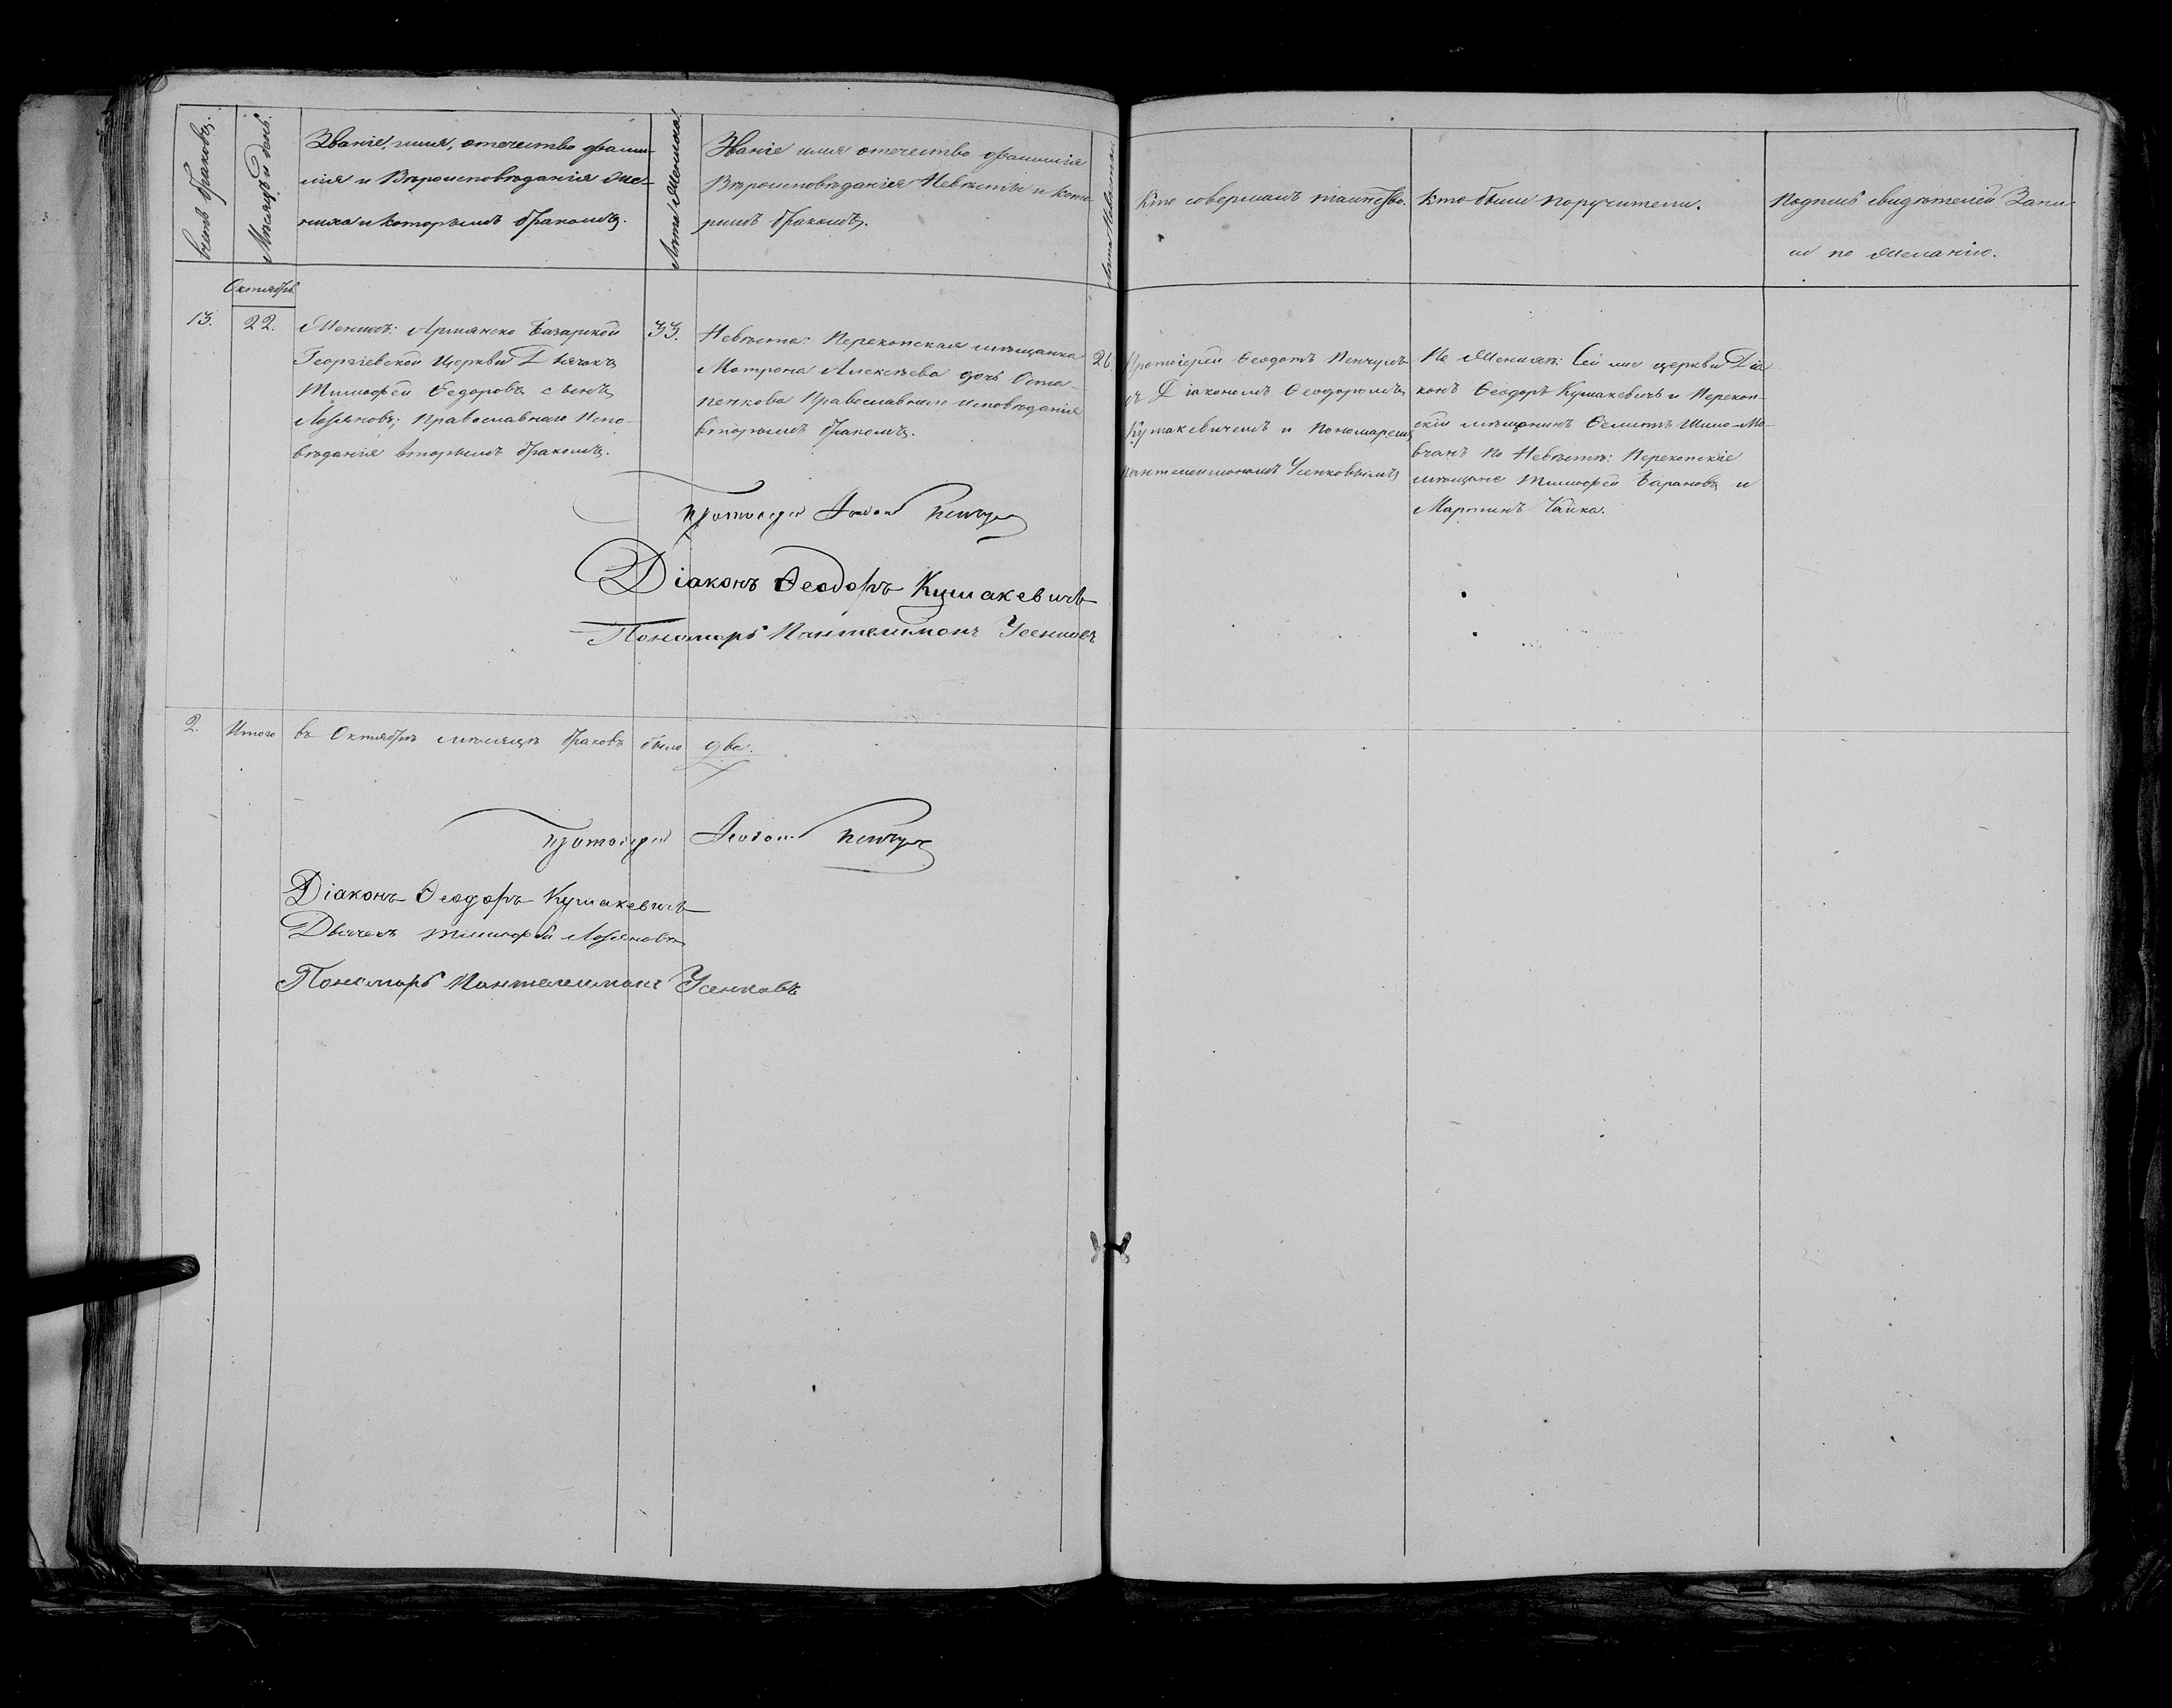 Счетъ браковъ.
Мѣсяцъ и день.
Званіе, имя, отечество фами-
лія и Вѣроисповѣданія Же-
ниха и которымъ бракомъ.
Лѣта Жениха.
Званіе имя отечество фамилія
Вѣроисповѣданія Невѣсты и кото-
рымъ бракомъ.
Лѣта Невѣсты
Кто совершалъ таинство.
Кто были поручители.
Подпись свидѣтелей Запи-
си по желанію.
Октябрь
13.
22.
Женихъ: Армянско Базарской
Георгіевской Церкви Дьячокъ
Тимофей Ѳедоровъ сынъ
православнаго Испо-
вѣданія вторымъ бракомъ.
33.
Невѣста: Перекопская мѣщанка
Матрона Алексѣева дочь Оста-
пенкова Православнаго исповѣданія
вторымъ бракомъ.
26.
Протоіерей Ѳеодотъ
съ Діакономъ Ѳеодоромъ
Кушакевичемъ и Пономаремъ
Пантелеимономъ Усенковымъ
По Женихѣ: Сей же церкви Діа-
конъ Ѳеодоръ Кушакевичъ и Перекоп-
скій мѣщанинъ
По Невѣстѣ: Перекопскіе
мѣщане Тимофей Барановъ и
Мартинъ Чайка.
Протоіерей Ѳеодотъ
Діаконъ Ѳеодоръ Кушакевичъ
Пономарь Пантелеимонъ Усенковъ
2.
Итого въ Октябрѣ мѣсяцѣ браковъ было два.
Протоіерей Ѳеодотъ
Діаконъ Ѳеодоръ Кушакевичъ
Дьячекъ Тимофей
Пономарь Пантелеимонъ Усенковъ